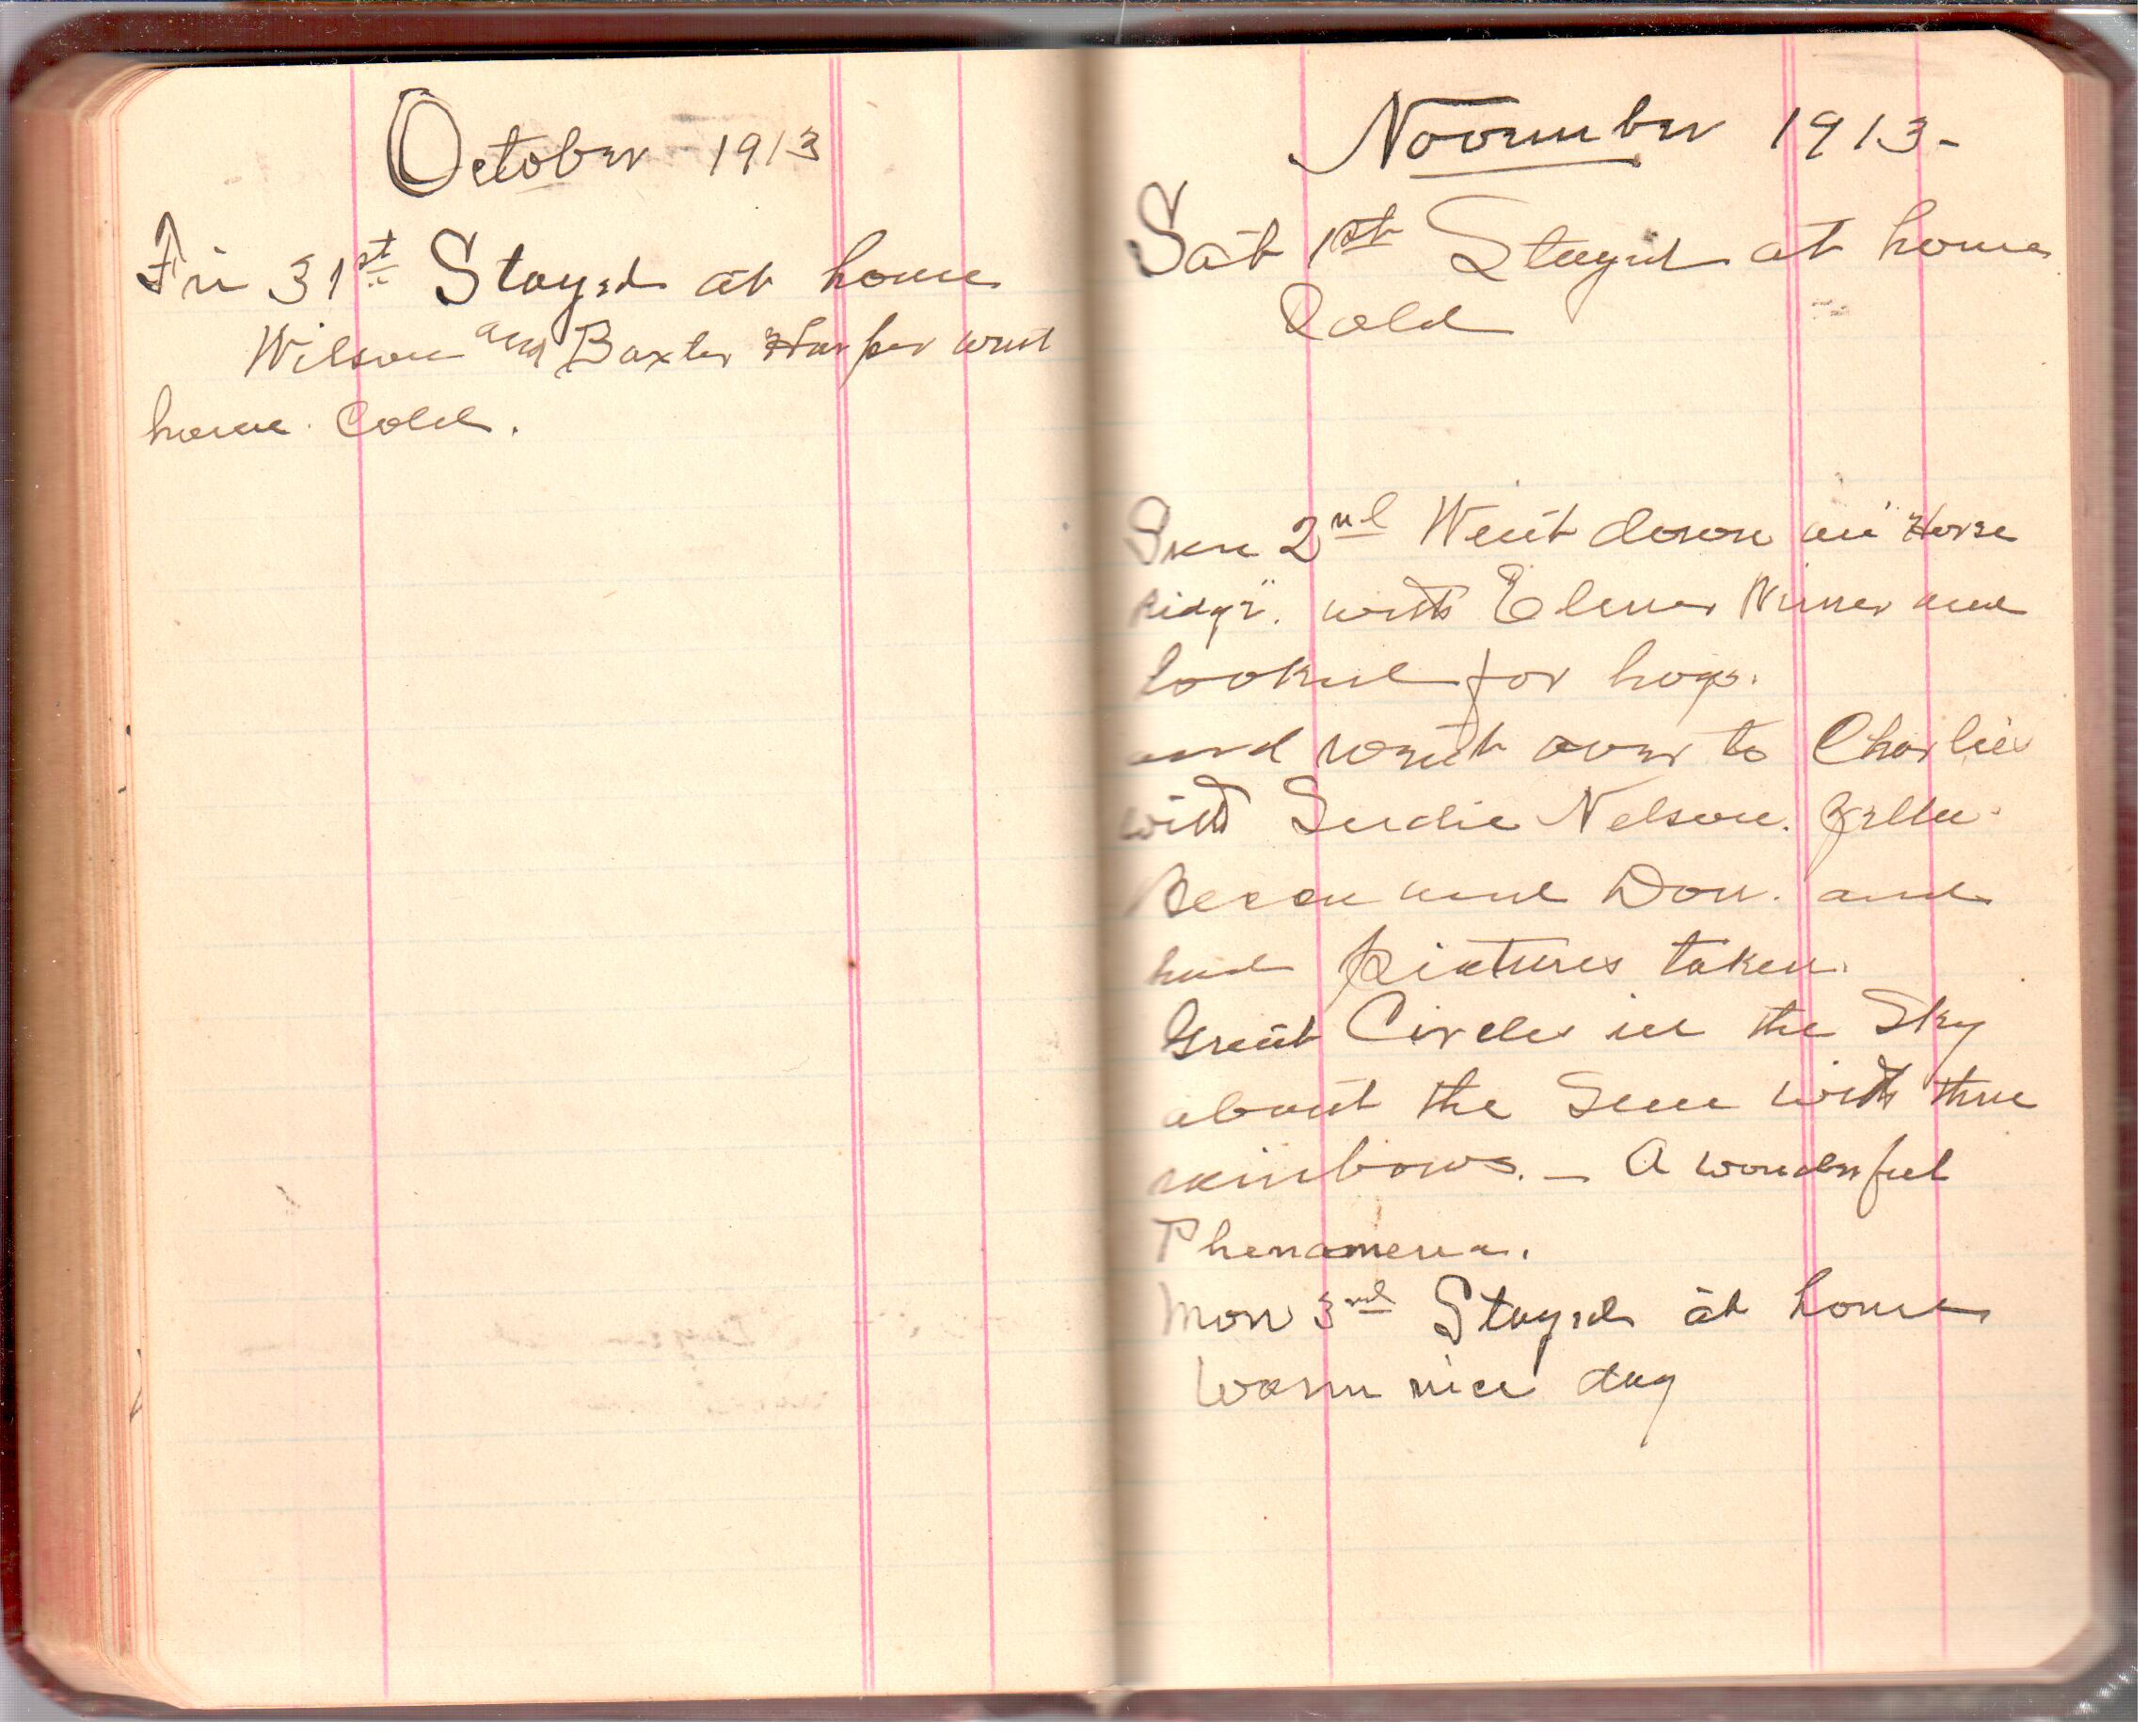 October 1913
Fri 31st Stayed at home
Wilson and Baxter Harper went
home. Cold.
November 1913-
Sat 1st Stayed at home
Cold
Sun 2nd Went down on "Horse
Ridge". with Elmer and
looked for hogs.
and went over to Charlies
with Nelson.
and Don. and
had pictures taken.
Great Circles in the Sky
about the Sun with three
rainbows. - A wonderful
Phenamena.
Mon 3rd Stayed at home
Warm nice day